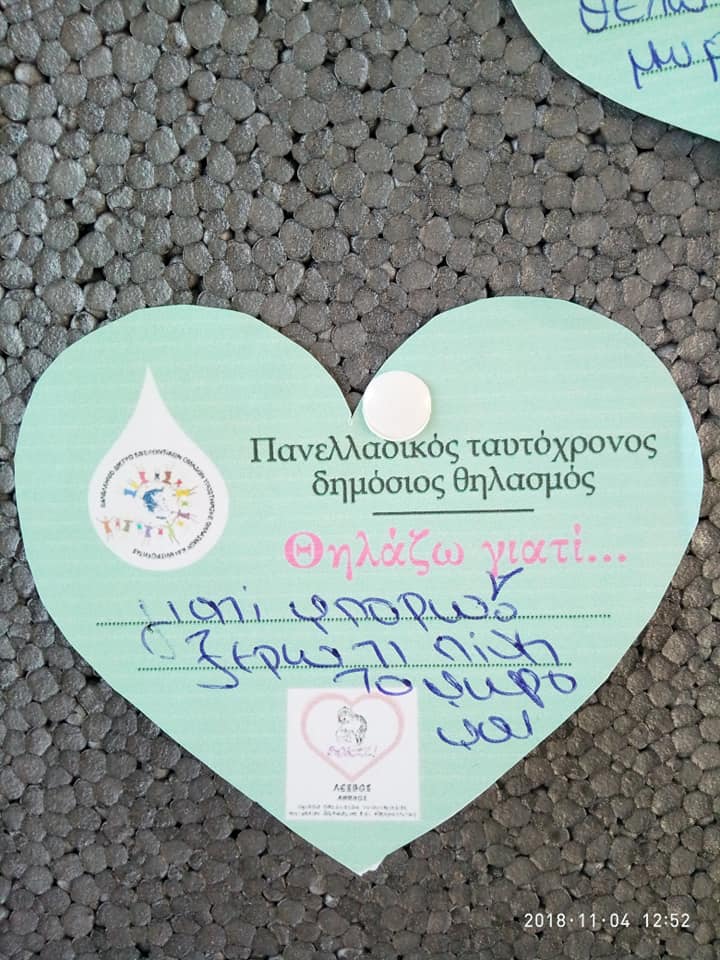 θελω
μυρ
Πανελλαδικός ταυτόχρονος
δημόσιος θηλασμός
Θηλάζω γιατί...
γιατι μπορω
ξερω τι πινη
το μικρο
μου
ΛΕΣΒΟΣ
2018·11·04 12:52